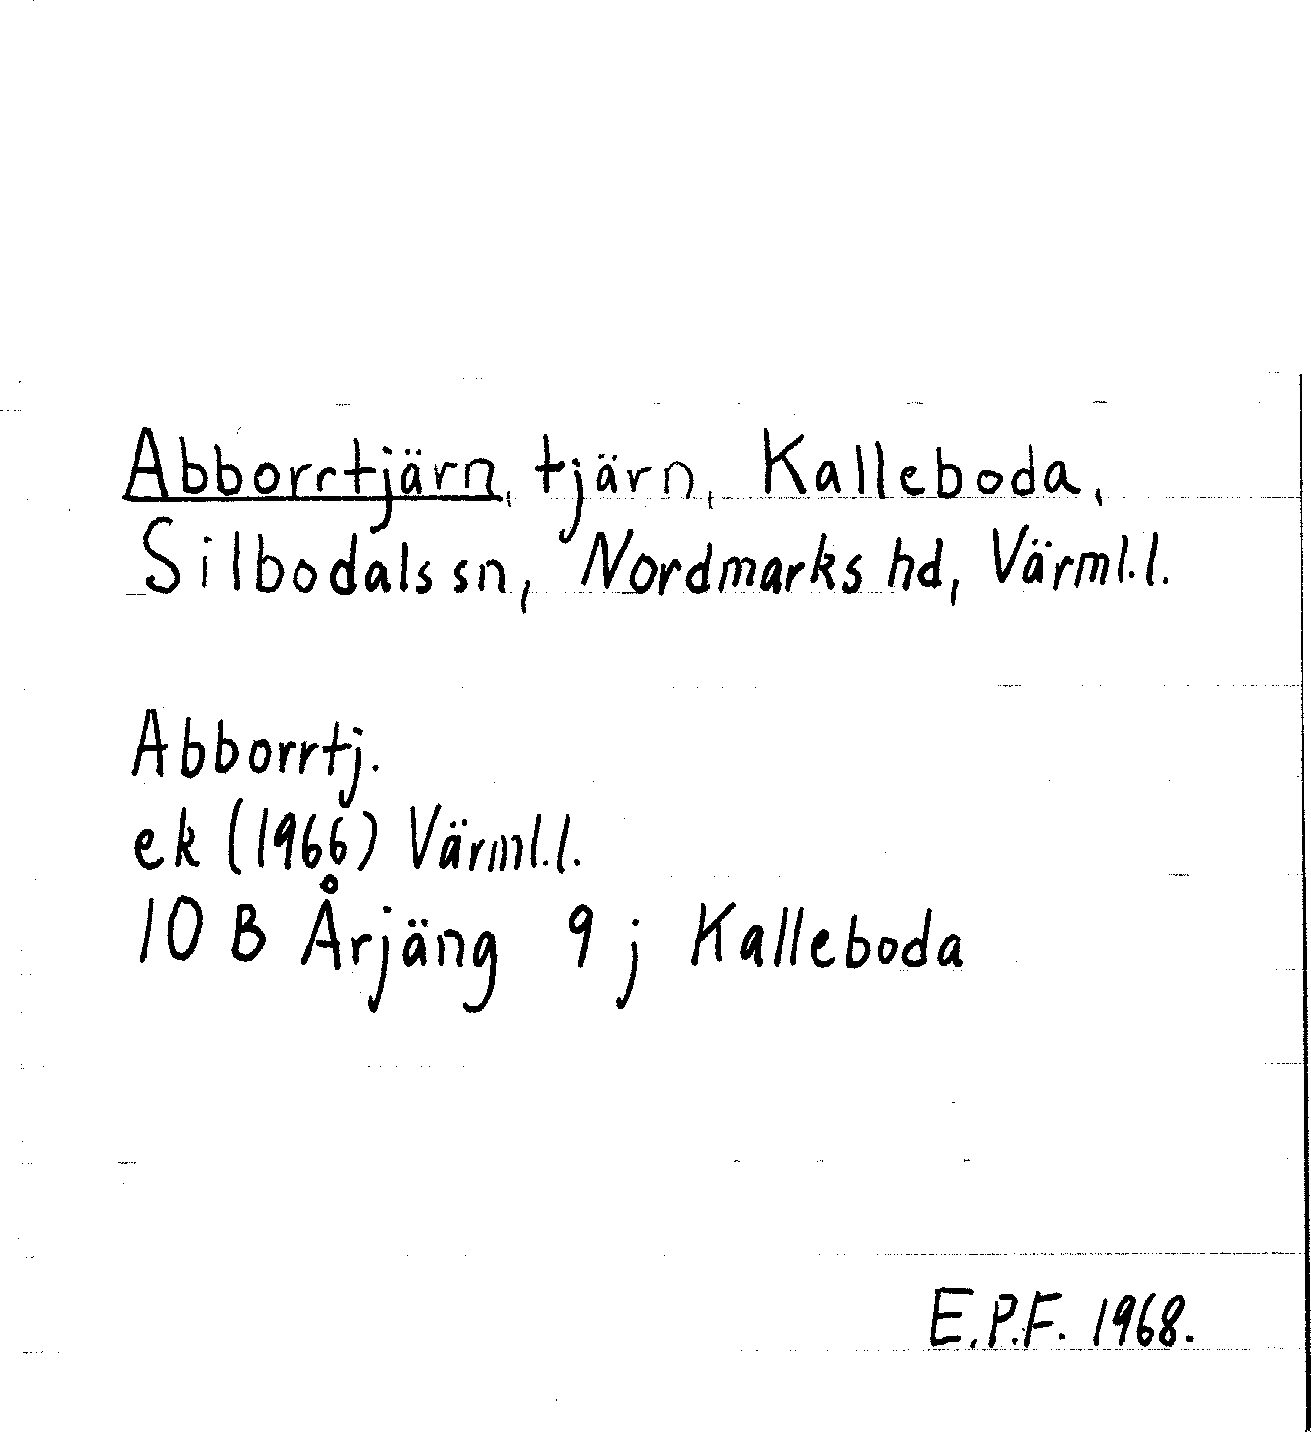 Abborrtjärn, tjärn, Kalleboda,
Silbodals sn, Nordmarks hd, Värml.l.
Abborrtj.
ek (1966) Värml.l.
10 B Årjäng 9 j Kalleboda
E.P.F. 1968.